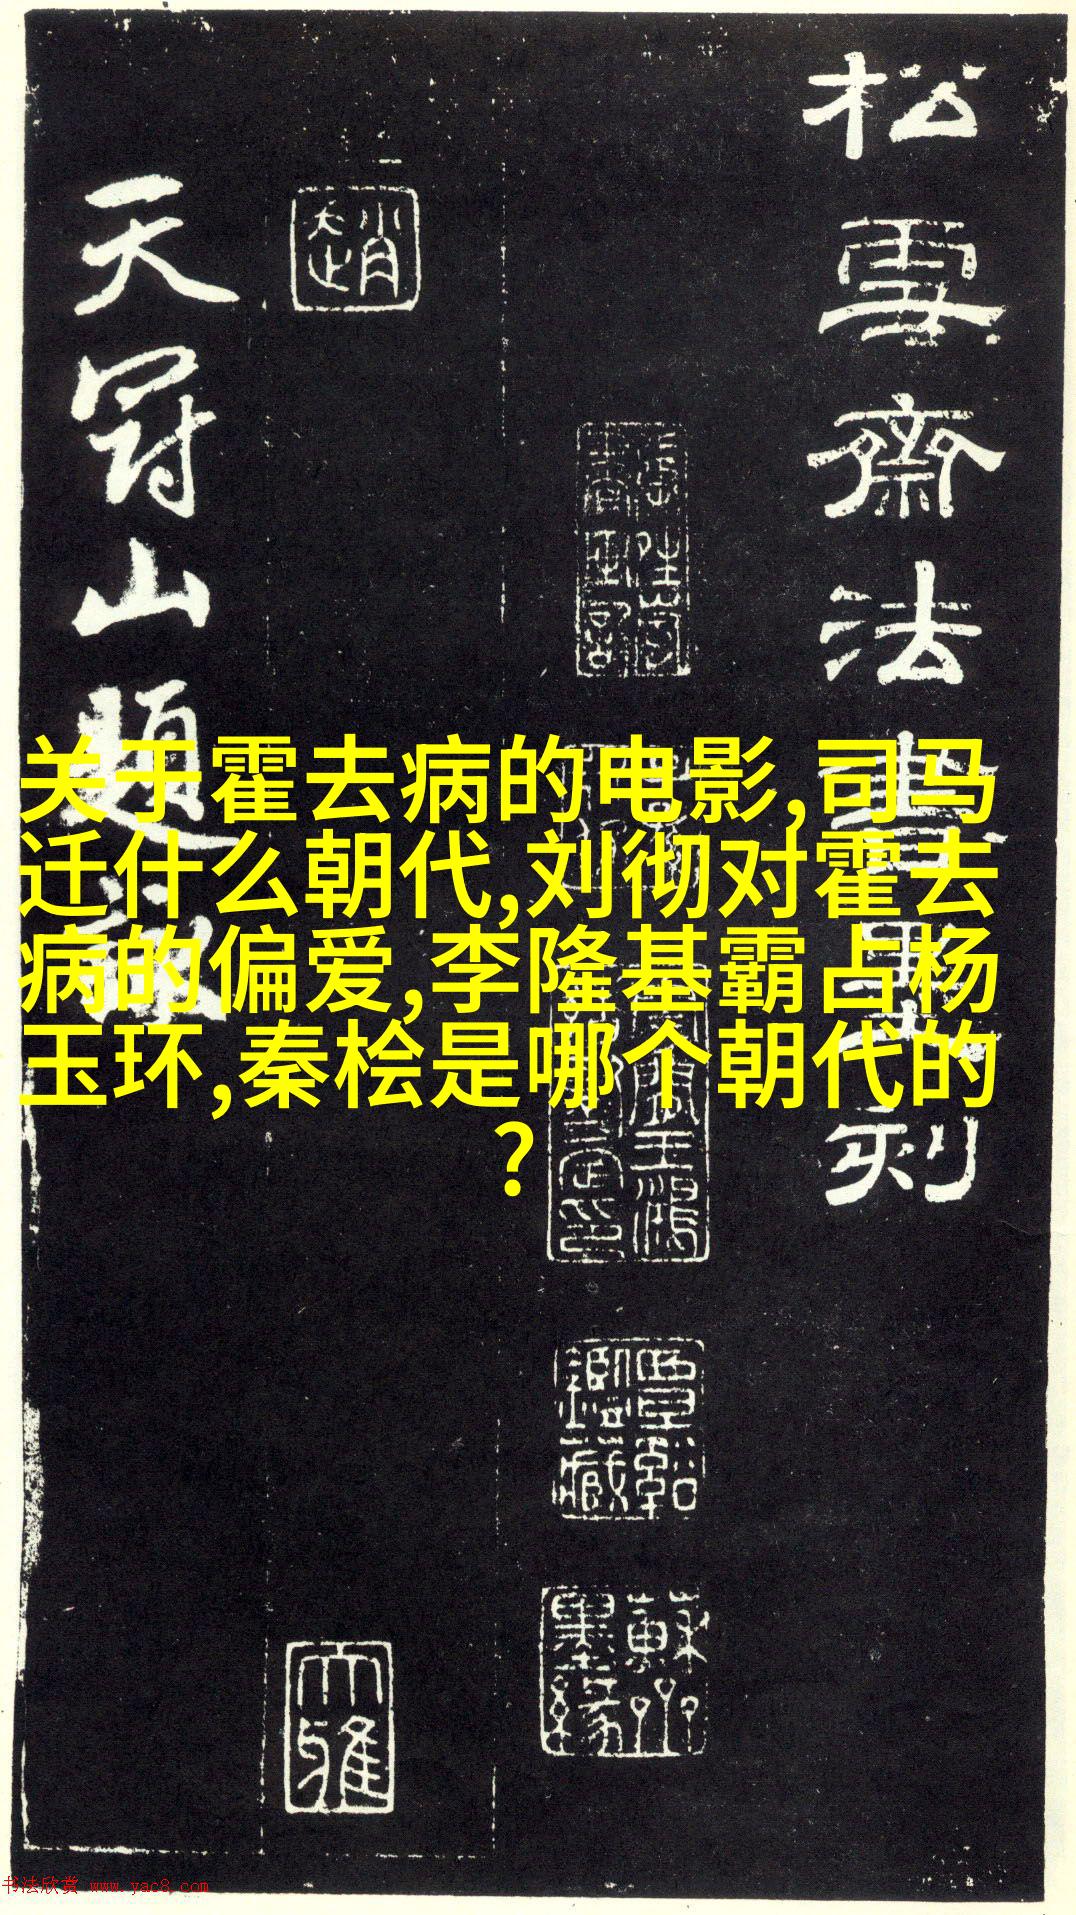 松雪斋法書墨刻
趙
大雅
天冠山題詠
关于霍去病的电影,司马
迁什么朝代,刘彻对霍去
病的偏爱,李隆基霸占杨
玉环,秦桧是哪个朝代的
?
覃谿
鑑藏
蘇齋
墨緣
书法欣赏 www.yac8.com